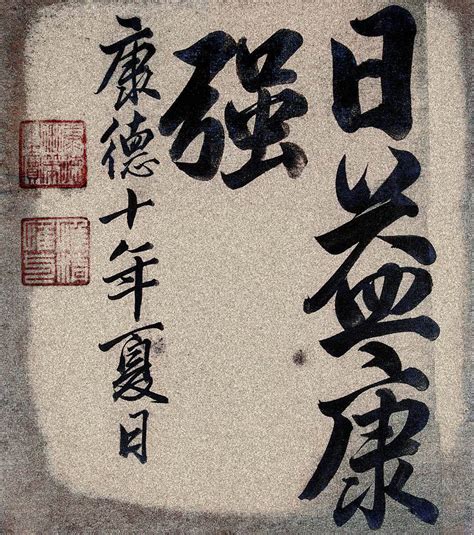 日益康
强
康德十年夏日